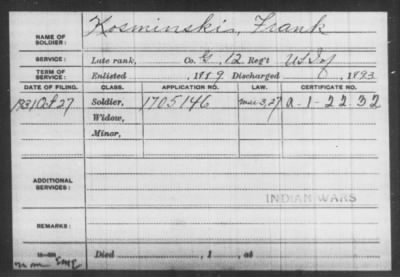 NAME OF SOLDIER: Kosminski, Frank
SERVICE: Late rank, Co. G, 12 Reg't US Inf
TERM OF SERVICE: Enlisted , 1889 Discharged , 1893
DATE OF FILING. CLASS. APPLICATION NO. LAW. CERTIFICATE NO.
1931 Oct 27 Soldier, 1705146 Mar 3, 27 a-1-22-32
Widow,
Minor,
ADDITIONAL SERVICES:
INDIAN WARS
REMARKS:
Died , 1 , at